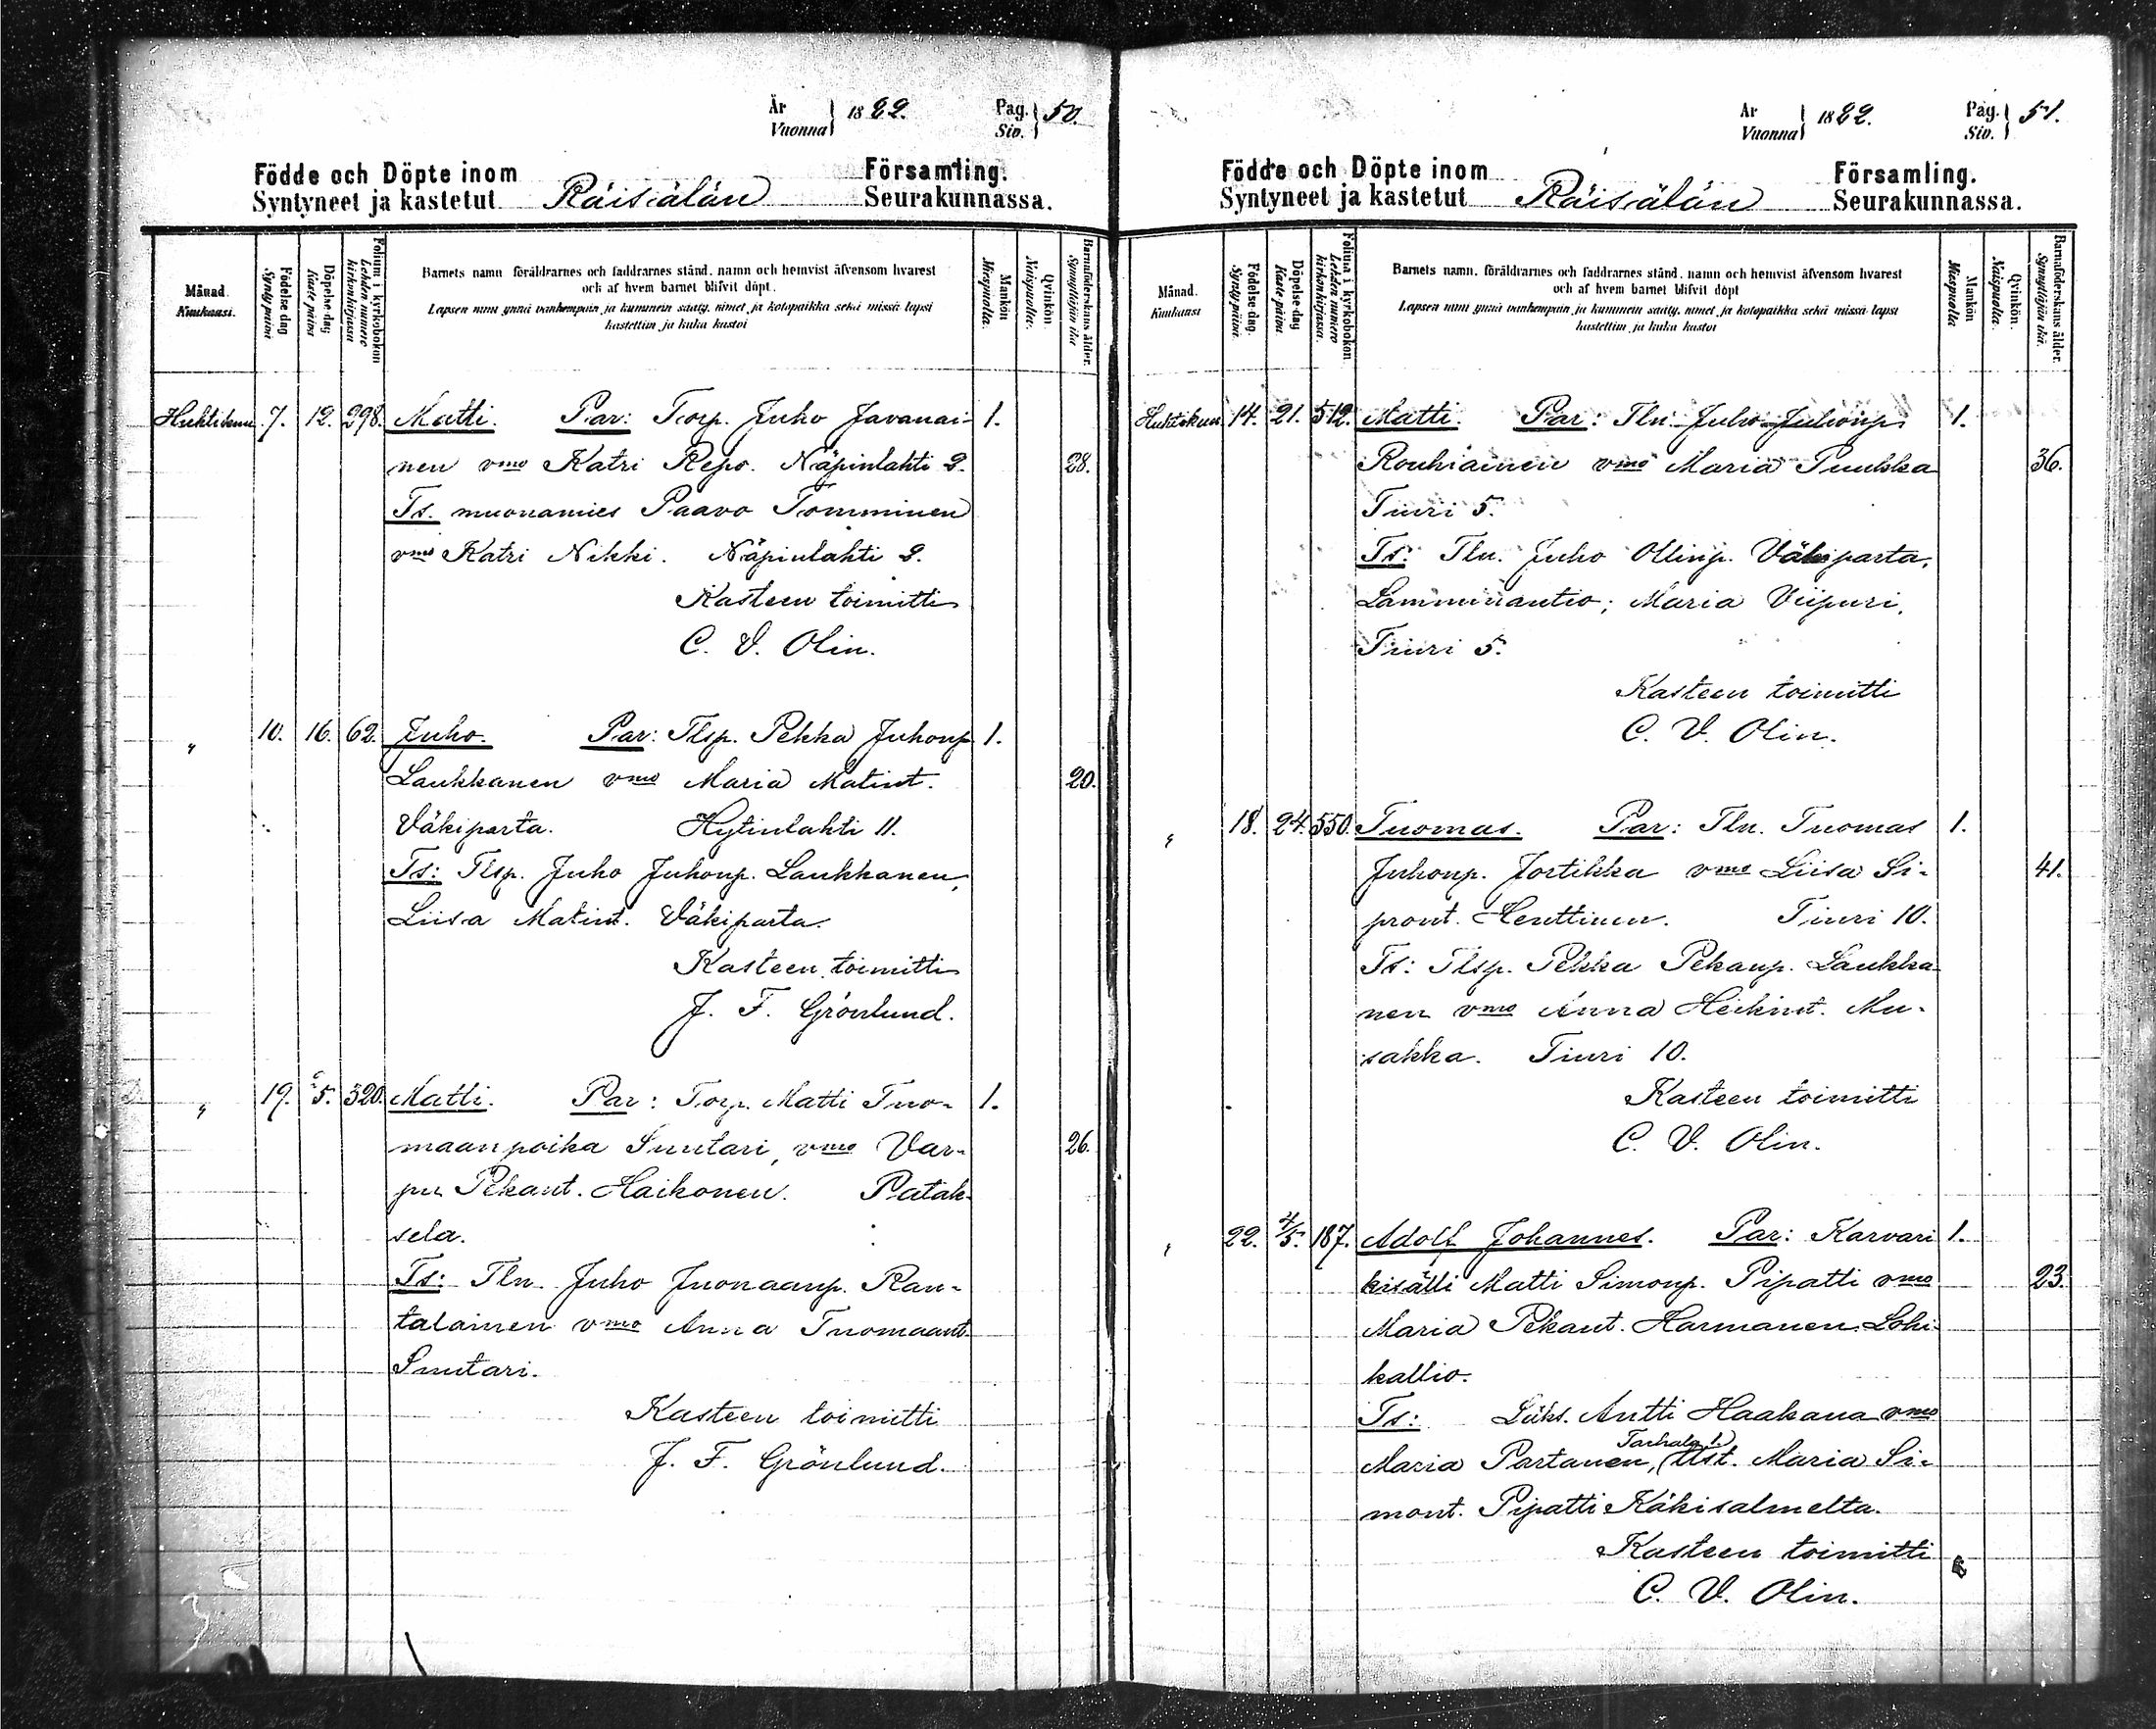 År
Vuonna
1882.
Pag.
Siv.
50.
Födde och Döpte inom
Syntyneet ja kastetut
Räisälän
Församling.
Seurakunnassa.
Månad.
Kuukausi.
Födelse dag
Synty päivä
Döpelse-dag
Kaste päivä
Folium i kyrkoboken
Lehden numero
kirkonkirjassa
Barnets namn föräldrarnes och faddrarnes stånd, namn och hemvist äfvensom hvarest
och af hvem barnet blifvit döpt.
Lapsen nimi ynnä vanhempain ja kummein sääty, nimet ja kotopaikka sekä missä lapsi
kastettiin ja kuka kastoi
Mankön
Miespuolia.
Qvinkön.
Naispuolia.
Barnaföderskans ålder.
Synnyttäjän ikä
Huhtikuu 7. 12. 298. Matti. Par: Torp. Juho Javanai- 1.
nen vmo Katri Repo. Näpinlahti 2. 28.
Ts. muonamies Paavo Tomminen
vmo Katri Nikki. Näpinlahti 2.
Kasteen toimitti
C. V. Olin.
" 10. 16. 62. Juho. Par: Tlsp. Pekka Juhonp 1.
Laukkanen vmo Maria Matint. 20.
Väkiparta. Hytinlahti 11.
Ts: Tlsp. Juho Juhonp. Laukkanen,
Liisa Matint. Väkiparta.
Kasteen toimitti
J. F. Grönlund.
" 19. 5. 320. Matti. Par: Torp. Matti Tuo- 1.
maanpoika Suutari, vmo Var- 26.
pu Pekant. Haikonen. Patak-
sela.
Ts: Tln. Juho Juonaanp. Ran-
talainen vmo Anna Tuomaant.
Suutari.
Kasteen toimitti
J. F. Grönlund.
År
Vuonna
1882.
Pag.
Siv.
51.
Födde och Döpte inom
Syntyneet ja kastetut
Räisälän
Församling.
Seurakunnassa.
Månad.
Kuukausi
Födelse-dag.
Synty päivä.
Döpelse-dag
Kaste päivä
Folium i kyrkoboken
Lehden numero
kirkonkirjassa.
Barnets namn, föräldrarnes och faddrarnes stånd, namn och hemvist äfvensom hvarest
och af hvem barnet blifvit döpt
Lapsen nimi ynnä vanhempain ja kummein sääty, nimet ja kotopaikka sekä missä lapsi
kastettiin ja kuka kastoi
Mankön
Miespuolia
Qvinkön.
Naispuolia.
Barnaföderskans ålder.
Synnyttäjän ikä.
Huhtikuu 14. 21. 512. Matti. Par: Tln. Juho Juhonp. 1.
Rouhiainen vmo Maria Puukka 36.
Tiuri 5.
Ts: Tln. Juho Ollinp. Väkiparta,
Lamminautio; Maria Viipuri,
Tiuri 5.
Kasteen toimitti
C. V. Olin.
" 18. 24. 550. Tuomas. Par: Tln. Tuomas 1.
Juhonp. Jortikka vmo Liisa Si- 41.
pront. Henttinen. Tiuri 10.
Ts: Tlsp. Pekka Pekanp. Laukka-
nen vmo Anna Heikint. Mu-
sakka. Tiuri 10.
Kasteen toimitti
C. V. Olin.
" 22. 4/5. 187. Adolf Johannes. Par: Karvari 1.
kisälli Matti Simonp. Pipatti vmo 23.
Maria Pekant. Harmanen. Lohi-
kallio.
Ts: Lüks. Antti Haakana vmo
Tarhala 1.)
Maria Partanen, (Itst. Maria Si-
mont. Pipatti Käkisalmelta.
Kasteen toimitti
C. V. Olin.